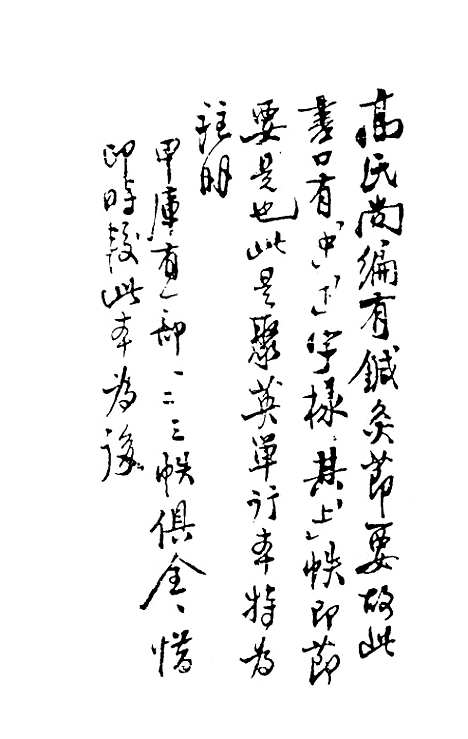 高氏尚編有鍼灸節要故此
書口有「中」「下」字樣其「上」帙即節
要是也此是聚英單行本特為
註明
甲庫有一部一二三帙俱全惜
印時較此本為後